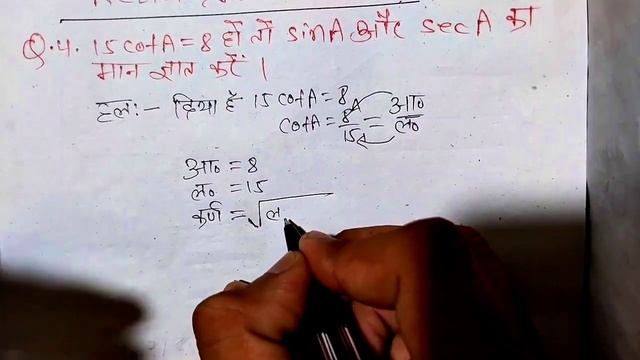 Q.4. 15 cotA = 8 हो तो sinA और secA का
मान ज्ञात करें ।
हलः- दिया है 15 cotA = 8
cotA = 8/15 = आ०/ल०
आ० = 8
ल० = 15
कर्ण = √ल